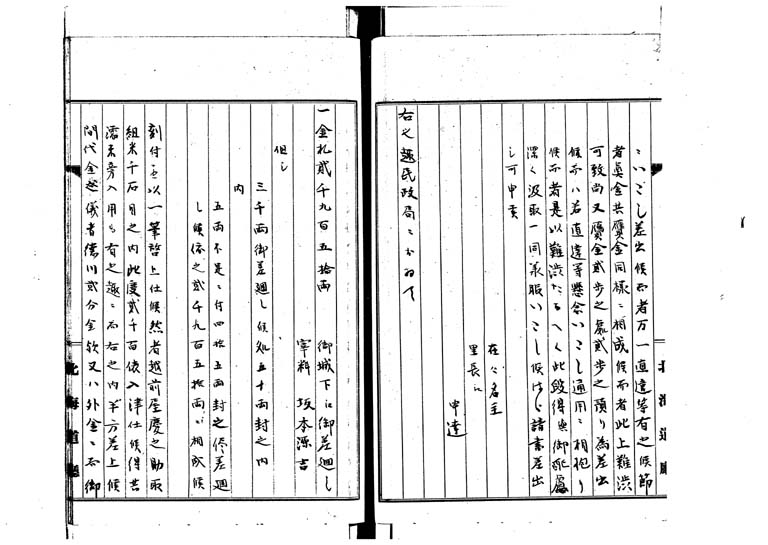 いたし差出候而者万一直違等有之候節
者真金共贋金同様ニ相成候而者此上難渋
可致尚又贋金弐歩之処弐歩之預り為差出
候而ハ若直違等懸念いたし通用ニ相拘り
候而者是以難渋たるへく此段得与御配慮
深く汲取一同承服いたし候ハヽ諸書差出
し可申事
在々名主
里長江
申達
右之趣民政局ニおゐて
一金札弐千九百五拾両 御城下江御差廻し
宰料 坂本源吉
但し
三千両御差廻し候処五十両封之内
内
五両不足ニ付四拾五両封之侭差廻
し候依之弐千九百五拾両ニ相成候
刻付を以一筆啓上仕候然者越前屋慶之助取
組米千石目之内此度弐千百俵入津仕候得共
濡米旁入用も有之趣ニ而右之内半方差上候
間代金越儀者徳川弐分金欤又ハ外金ニ而御
北海道庁
北海道庁